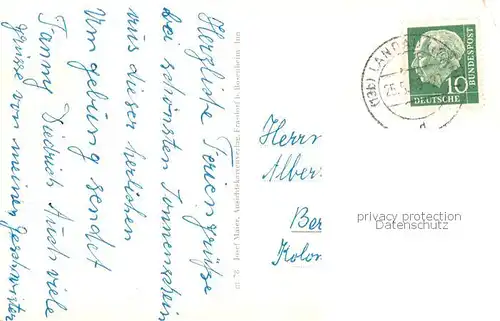 Herzliche Feriengrüße
bei schönsten Sonnenschein
aus dieser herlichen
Umgebung sendet
Fanny Diedrich Auch viele
grüsse von meinen geschwister
m 76 Josef Maier, Ansichtskartenverlag, Frasdorf b. Rosenheim Inn
LANDAU
25.5.
DEUTSCHE
BUNDESPOST
10
Herrn
Alber
Ber
Kolon
privacy protection
Datenschutz